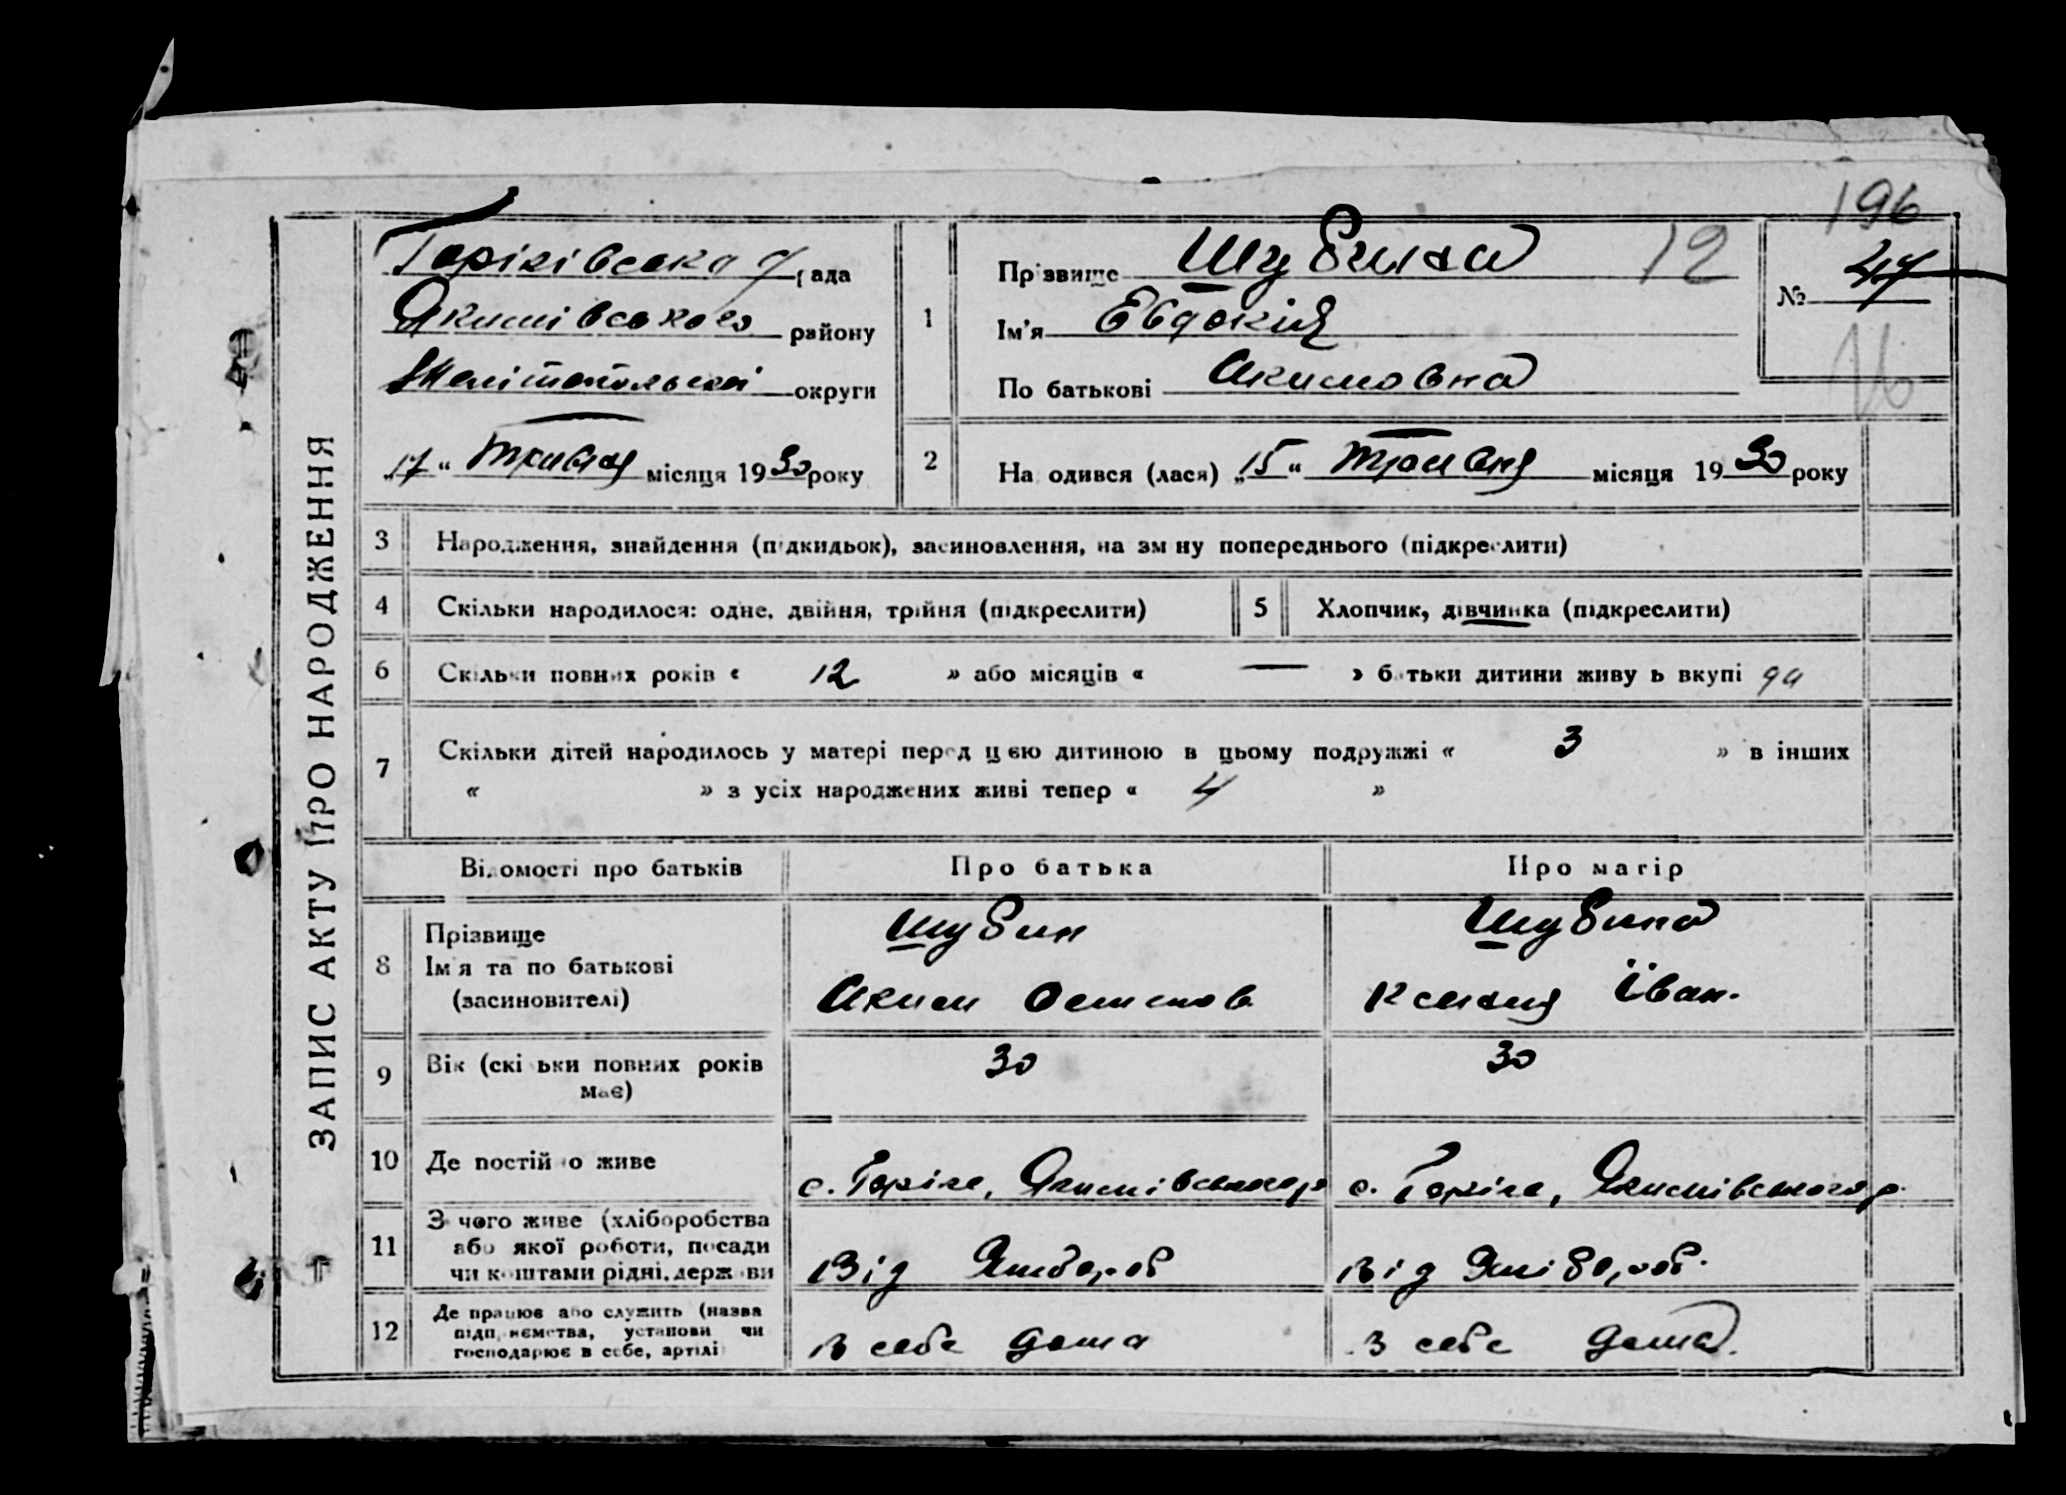 196
ЗАПИС АКТУ ПРО НАРОДЖЕННЯ
Горіківська рада
Якимівського району
Мелітопольскої округи
„17“ Травня місяця 1930 року
1
Прізвище Шубина 12
Ім'я Евдокія
По батькові Акимовна
№ 47
16
2
На одився (лася) „15“ Травня місяця 1930 року
3 Народження, знайдення (підкидьок), засиновлення, на зм ну попереднього (підкреслити)
4 Скільки народилося: одне, двійня, трійня (підкреслити)
5 Хлопчик, дівчинка (підкреслити)
6 Скільки повних років « 12 » або місяців « — » батьки дитини живу ь вкупі
7 Скільки дітей народилось у матері перед цією дитиною в цьому подружжі « 3 » в інших
« » з усіх народжених живі тепер « 4 »
Відомості про батьків Про батька Про матір
8 Прізвище Шубин Шубина
Ім я та по батькові
(засиновителі) Аким Осипов Ксения Їван.
9 Вік (скі ьки повних років має) 30 30
10 Де постій о живе с. Горіле, Якимівського р с. Горіле, Якимівського р.
11 З чого живе (хліборобства
або якої роботи, посади
чи коштами рідні, держ ви Від Від
12 Де працює або служить (назва
підп иємства, установи чи
господарює в себе, артілі В себе дома В себе дома.